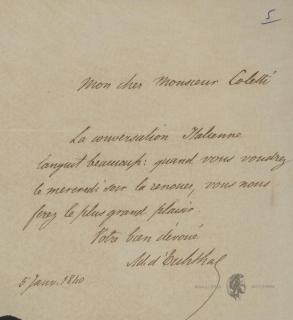 5
Mon cher Monsieur Coletti
La conversation Italienne
languit beaucoup: quand vous voudrez
le mercredi soir la renouer, vous nous
ferez le plus grand plaisir.
Votre bien dévoué
d'Eichthal
5 Janv. 1840